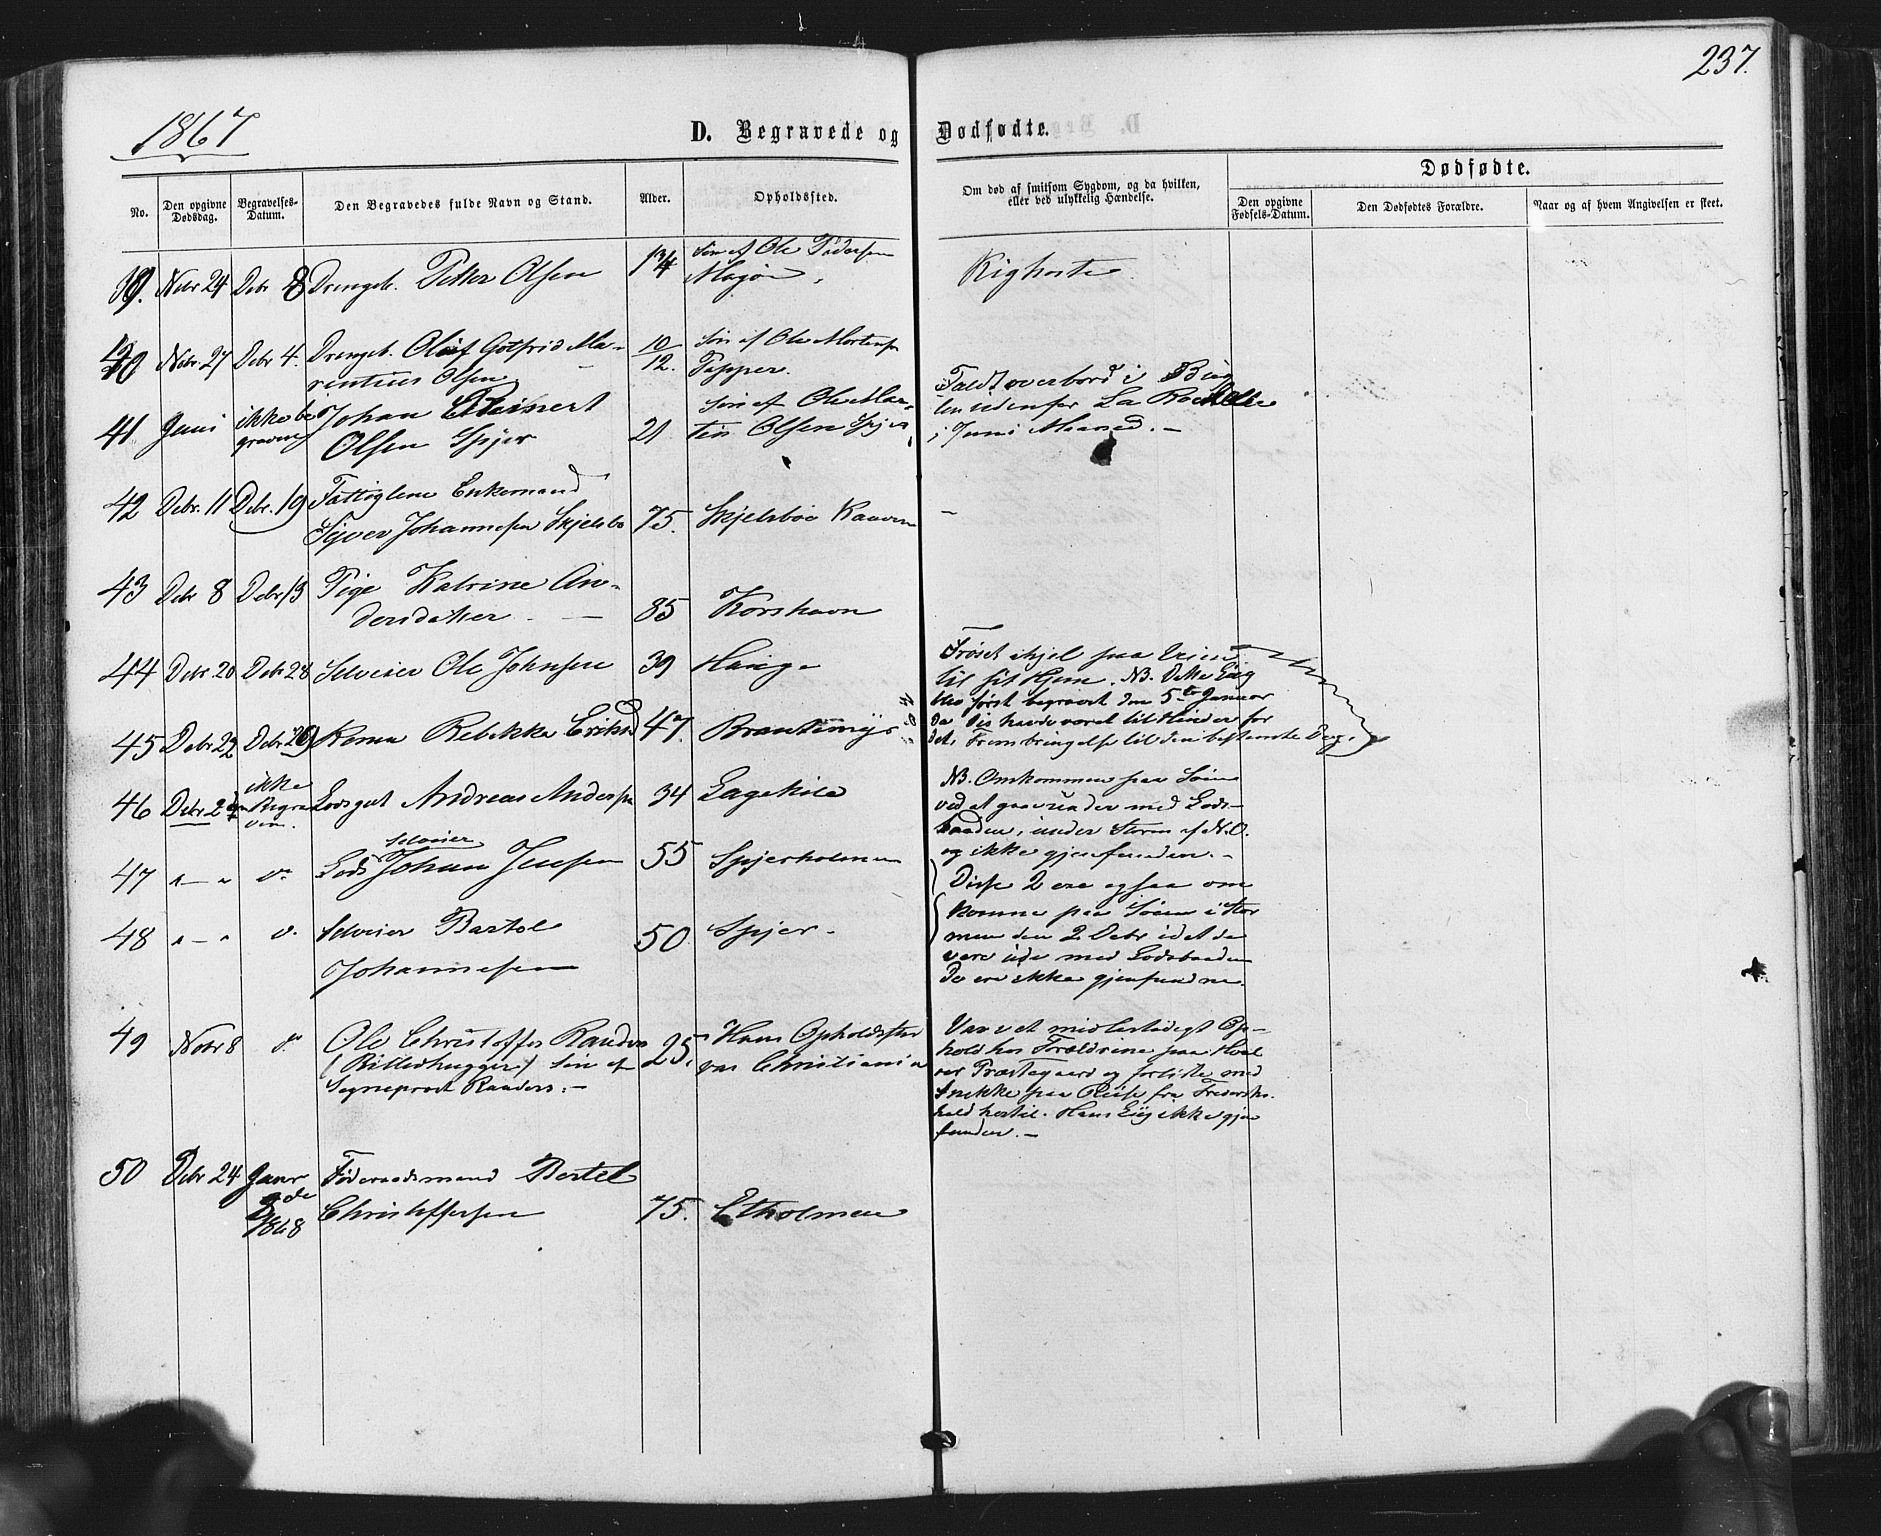 237.
1867
D. Begravede og Dødfødte.
No.
Den opgivne Dødsdag.
Begravelses-Datum.
Den Begravedes fulde Navn og Stand.
Alder.
Opholdssted.
Om død af smitsom Sygdom, og da hvilken, eller ved ulykkelig Hændelse.
Dødfødte.
Den opgivne Fødsels-Datum.
Den Dødfødtes Forældre.
Naar og af hvem Angivelsen er skeet.
39. Nobr 24 Debr 8 Drengeb. Petter Olsen 1 3/4 Søn af Ole Pedersen
Kighoste
40 Nobr. 27 Debr 4. Drengeb. Oluf Gotfrid Ma-
rentius Olsen
10/12. Søn af Ole Mortensen
Topper.
41 Juni ikke be
graven
Johan Edvinert
Olsen Spjer
21. Søn af Ole Mar-
tin Olsen Spjer
Faldt overbord i
udenfor La Rochelle
i Juni Maaned. -
42 Debr. 11 Debr. 19 Fattiglem Enkemand
Sjver Johannesen Skjelsbo
75. Skjelsboe
43 Debr 8 Debr 13 Pige Katrine An-
dersdatter. -
85 Korshavn
44 Debr 20 Debr 28 Selveier Ole Johnsen 39 Hauge
Frøset ihjel paa Veien
til sit Hjem. NB. Dette Liig
blev først begravet den 5te Januar
da Iis havde været til Hinder for
dets Frembringelse til den bestemte Dag.
45 Debr 22 Debr 29 Kone Rebekke Eriksd 47.
46 Debr 2den ikke
Begra
ven.
Lodsgut Andreas Andersen 34
NB. Omkommen paa Søen
ved at gaae under med Lods-
baaden, under Storm af N.O.
og ikke gjenfunden. -
47 " - " do Selveier
Lods Johan Jensen 55 Spjerholmen
Disse 2 ere ogsaa om
komne paa Søen i Stor
men den 2 Debr idet de
vare ude med Lodsbaaden
De ere ikke gjenfundne.
48 " - " do. Selveier Bartol
Johannesen
50 Spjer -
49 Nobr 8 do Ole Christoffer Raaders
(Billedhugger) Søn af
Sogneprest Raaders. -
25. Hans Opholdssted
var Christiania
Var ved et midlertidigt Op-
hold hos Forældrene paa Hval
øer Præstegaard og forliste med
Snekke paa Reise fra Fredriks-
hald hertil. Hans Liig ikke gjen
funden. -
50 Debr 24 Janr
2de
1868
Føderaadsmand Bertel
Christoffersen
75. Etholmen